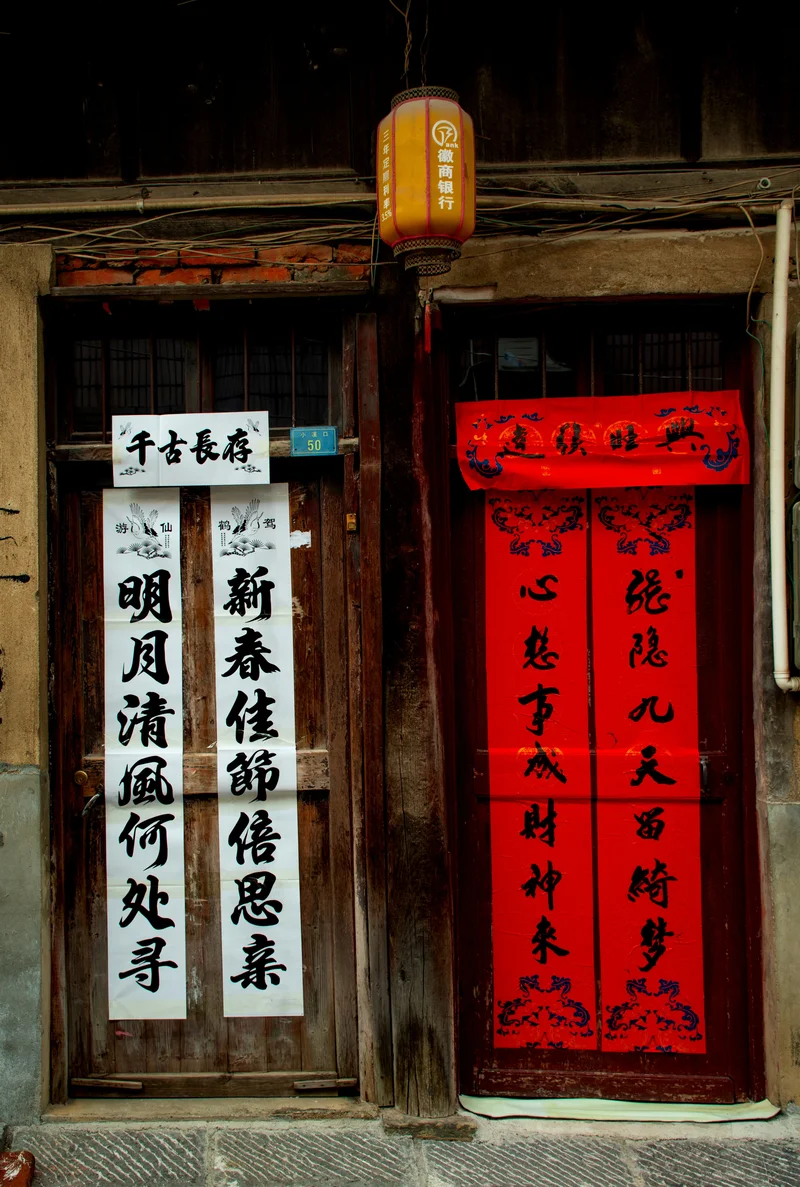 徽商银行
三年定期利率3.5%
千古長存
50
鹤驾
新春佳節倍思亲
游仙
明月清風何处寻
興旺發達
隐九天留綺梦
心想事成財神来